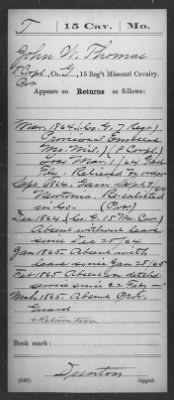 T 15 Cav. Mo.
John W. Thomas
Corpl, Co. G, 15 Reg't Missouri Cavalry.
Appears on
Returns as follows:
Mar. 1864, Co. G, 7 Regt
Provisional Enrolled
Mo. Mil. (1 Corpl.)
Mar. 1/64
Relieved by order
Sept. 1864.
Newtonia.
in Co. (Pvt)
Dec 1864 (Co. G, 15 Mo. Cav.)
Absent without leave
since Dec 25/64
Jan 1865. Absent with
leave since Jan 28/65
Feb 1865 Absent on detchd
service since 22 Feby
Mch 1865. Absent
Guard
Book mark:
(546)
Copyist.